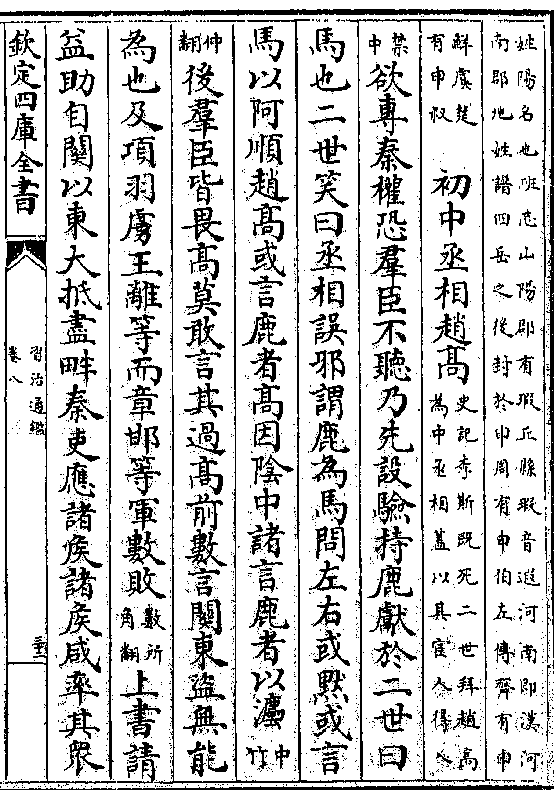 姓陽名也班志山陽郡有瑕丘縣瑕音遐河南即漢河
南郡也姓譜四岳之後封於申周有申伯左傳齊有申
鮮虞楚有申叔 初中丞相趙高史記李斯既死二世拜趙高為中丞相蓋以其宦人得入
禁中欲專秦權恐羣臣不聽乃先設驗持鹿獻於二世曰
馬也二世笑曰丞相誤邪謂鹿為馬問左右或黙或言
馬以阿順趙高或言鹿者高因陰中諸言鹿者以灋中竹
仲翻後羣臣皆畏高莫敢言其過高前數言關東盜無能
為也及項羽虜王離等而章邯等軍數敗數所角翻上書請
益助自關以東大抵盡畔秦吏應諸侯諸侯咸率其衆
欽定四庫全書
資治通鑑
卷八